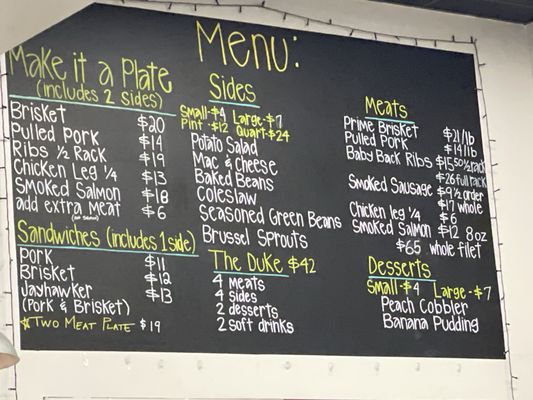 Menu:
Make it a Plate
(includes 2 sides)
Brisket $20
Pulled Pork $14
Ribs 1/2 Rack $19
Chicken Leg 1/4 $13
Smoked Salmon $18
add extra meat $6
(no salmon)
Sandwiches (includes 1 side)
Pork $11
Brisket $12
Jayhawker $13
(Pork & Brisket)
Two Meat Plate $19
Sides
Small-$4 Large-$7
Pint-$12 Quart-$24
Potato Salad
Mac & cheese
Baked Beans
Coleslaw
Seasoned Green Beans
Brussel Sprouts
The Duke $42
4 meats
4 sides
2 desserts
2 soft drinks
Meats
Prime Brisket $21/lb
Pulled Pork $14/lb
Baby Back Ribs $15.50 1/2 rack
$26 full rack
Smoked Sausage $9 1/2 order
$17 whole
Chicken leg 1/4 $6
Smoked Salmon $12 8oz
$65 whole filet
Desserts
Small-$4 Large-$7
Peach Cobbler
Banana Pudding